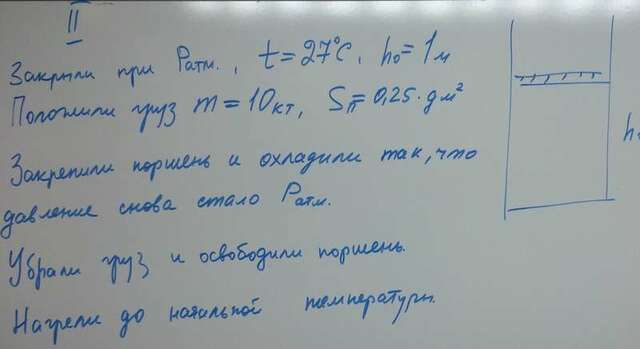 II
Закрыли при Pатм., t=27°C, h₀=1м
Положили груз m=10кг, Sп=0,25·дм²
Закрепили поршень и охладили так, что
давление снова стало Pатм.
Убрали груз и освободили поршень.
Нагрели до начальной температуры.